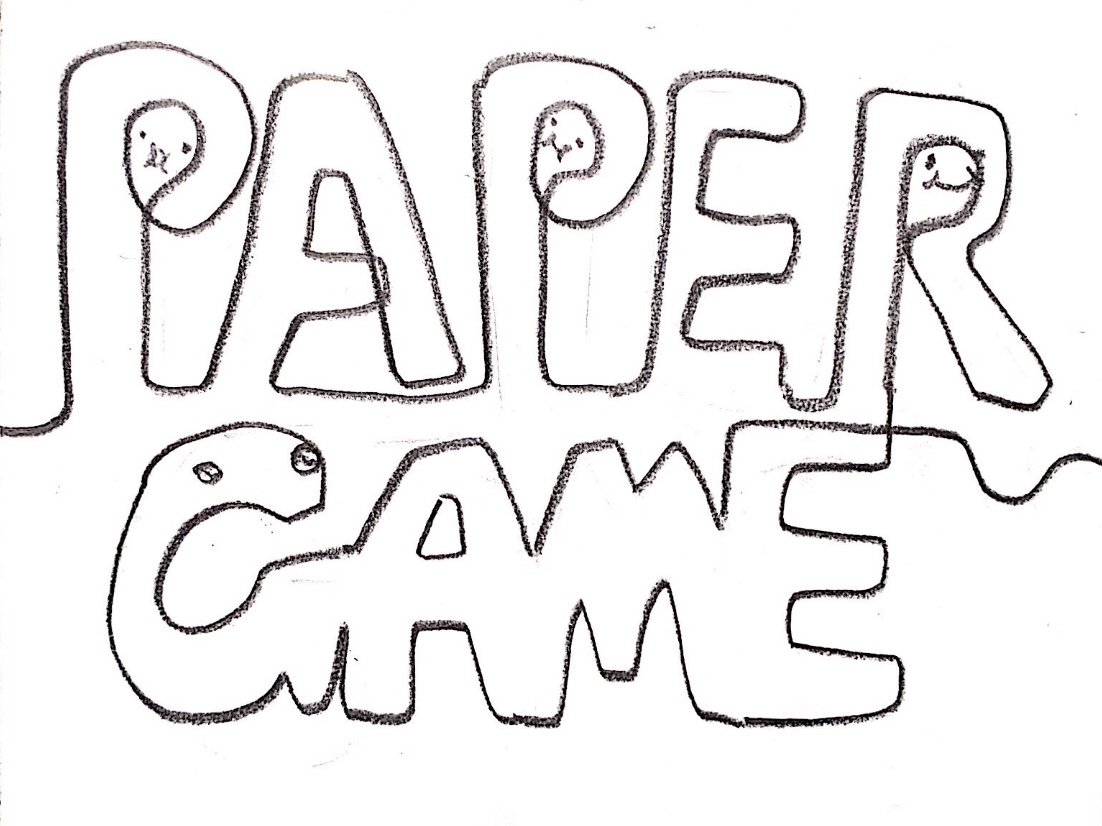 PAPER
GAME